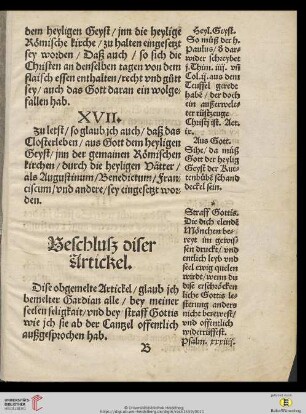 dem heyligen Geyst / jnn die heylige
Römische kirche / zu halten eingesetzt
sey worden / Daß auch / so sich die
Christen an denselben tagen von dem
flaisch essen enthalten / recht vnd gůtt
sey / auch das Gott daran ein wolge-
fallen hab.
XVII.
Zu letst / so glaub jch auch / daß das
Closterleben / aus Gott dem heyligen
Geyst / jnn der gemainen Römischen
kirchen / durch die heyligen Vätter /
als Augustinum / Benedictum / Fran-
ciscum / vnd andere / sey eingesetzt wor-
den.
Beschlusz diser
Artickel.
Dise obgemelte Artickel / glaub jch
bemelter Gardian alle / bey meiner
seelen seligkait / vnd bey straff Gottis
wie jch sie ab der Cantzel offentlich
außgesprochen hab.
B
Heyl. Geyst.
So můß der h.
Paulus / d dar-
wider schreybet
j. Thim. iiij. vñ
Col. ij. aus dem
Teuffel geredt
habē / der doch
ein außerwele-
ter rüstzeuge
Christi ist. Act.
ix.
Aus Gott.
Sihe / da můß
Gott der heylig
Geyst der
schand
deckel sein.
Straff Gottis.
Die dich elends
Mönchen be-
reyt im gewiß-
sen druckt / vnd
entlich leyb vnd
seel ewig quelen
würdt / wenn du
dise erschröcken
liche Gottis le-
sterung anders
nicht berewest /
vnd offentlich
widerrüffest.
Psalm.
© Universitätsbibliothek Heidelberg